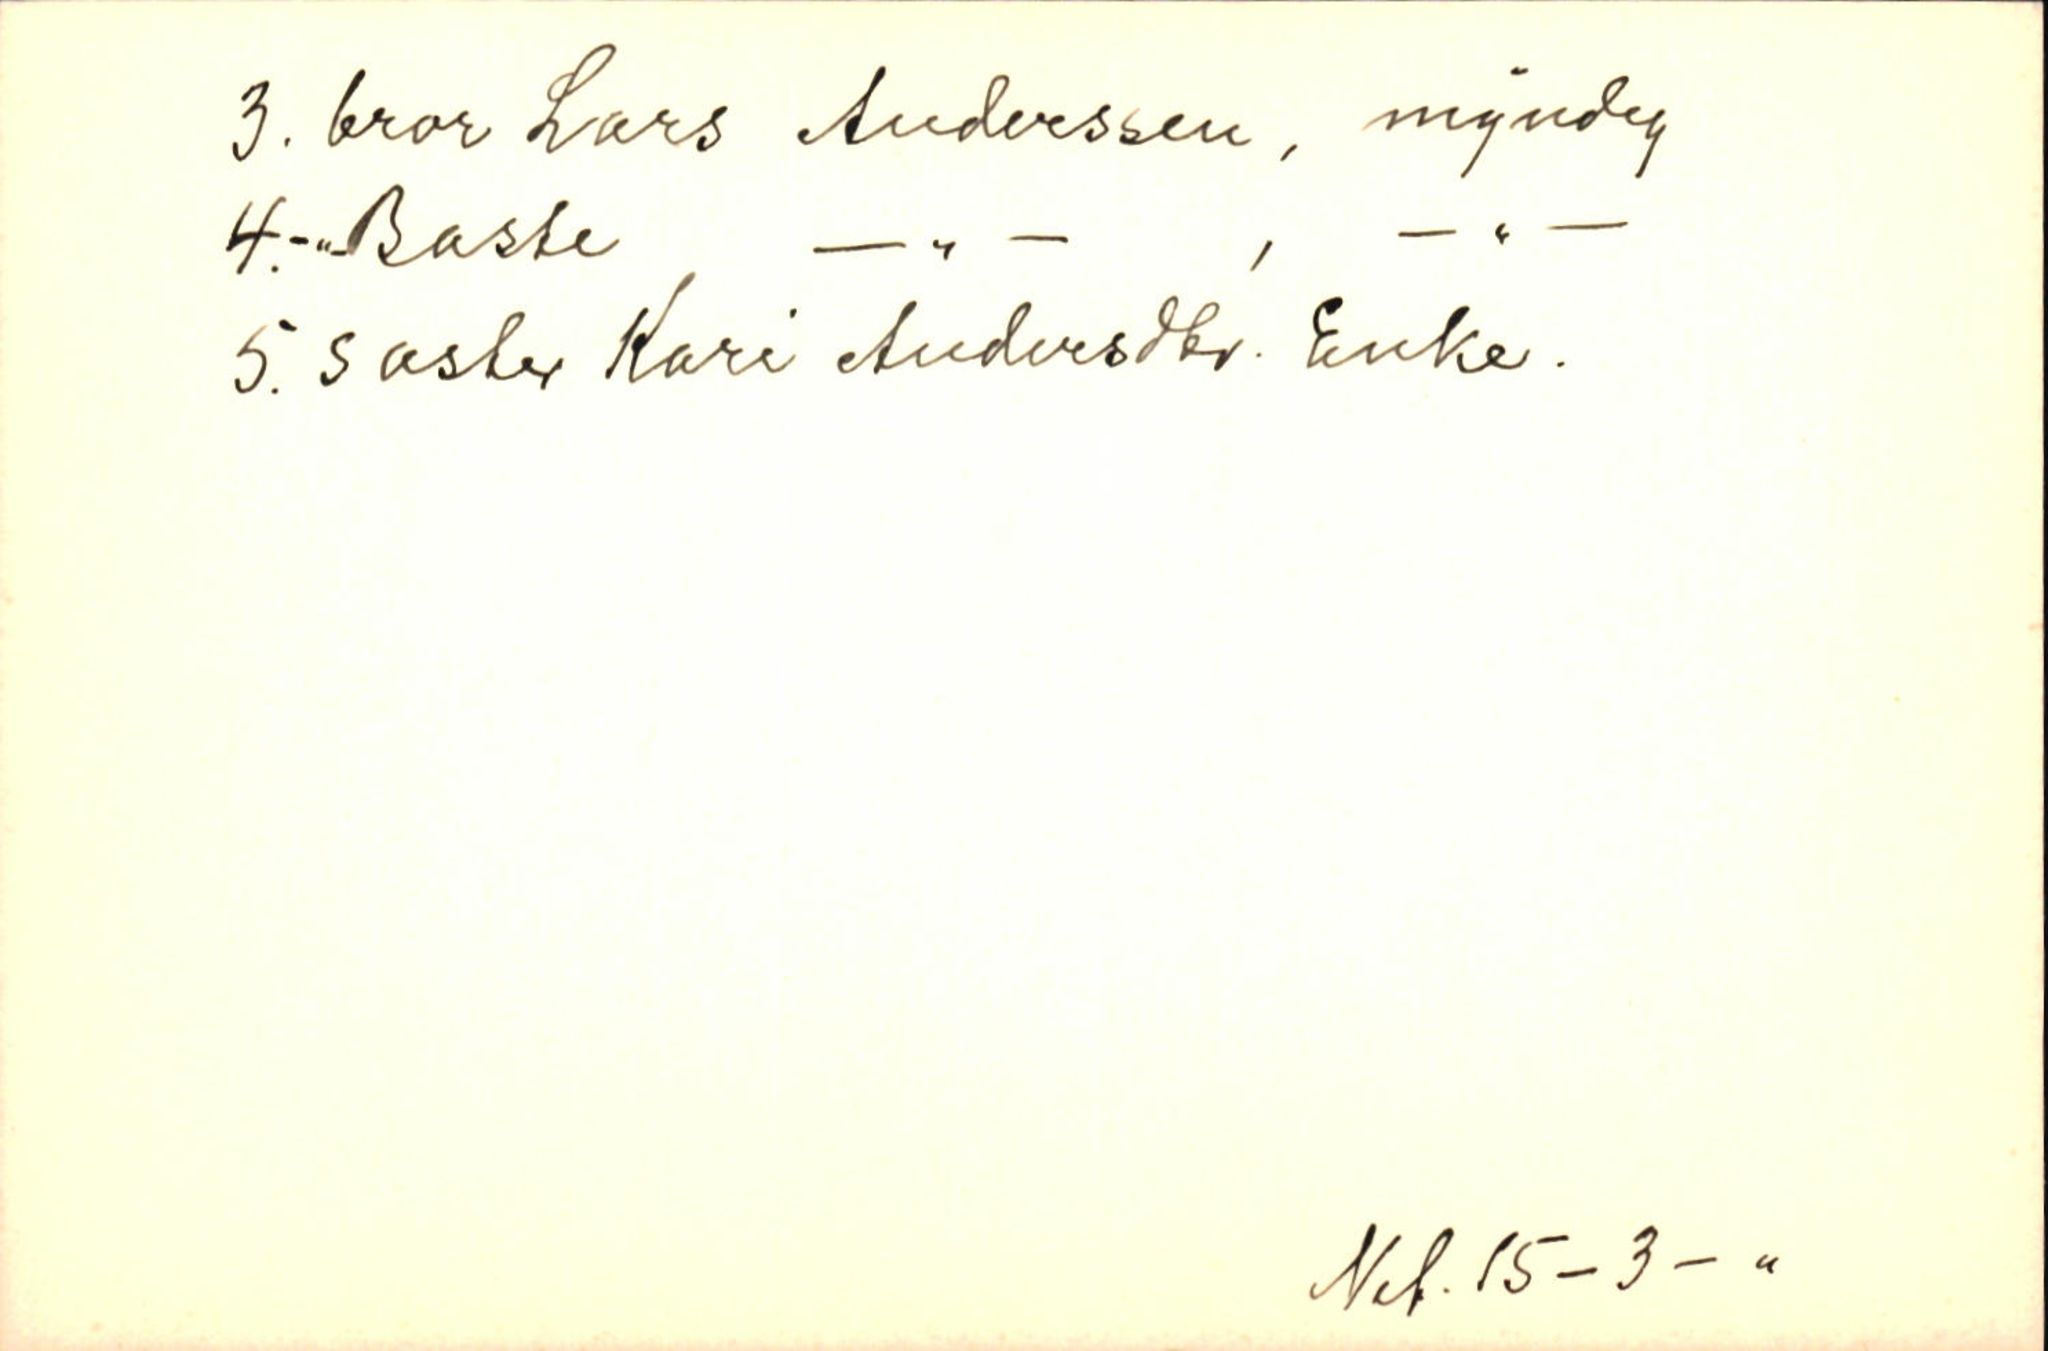 3. bror Lars Anderssen, myndig
4. -"- Baste -"-, -"-
5. søster Kari Andersdtr. Enke.
Net. 15-3-"